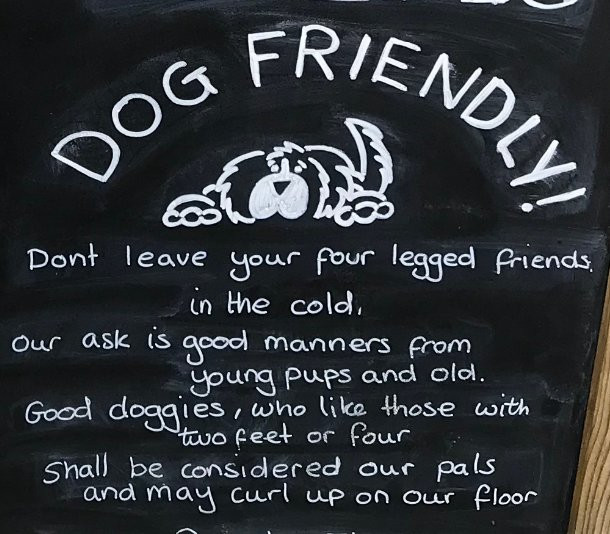 DOG FRIENDLY!
Dont leave your four legged friends.
in the cold.
Our ask is good manners from
young pups and old.
Good doggies, who like those with
two feet or four
Shall be considered our pals
and may curl up on our floor